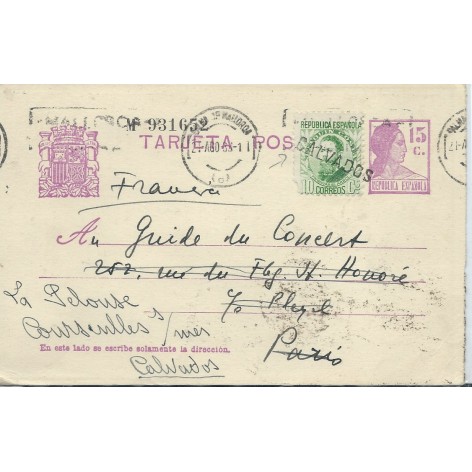 MALLORCA
Nº 931652
TARJETA POSTAL
REPUBLICA ESPAÑOLA
10 CORREOS
CALVADOS
15 c.
REPUBLICA ESPAÑOLA
Au Guide du Concert
252, rue du Fbg St Honoré
Pleyel
Paris
La Pelouse
Courseulles s/mer
Calvados
En este lado se escribe solamente la dirección.